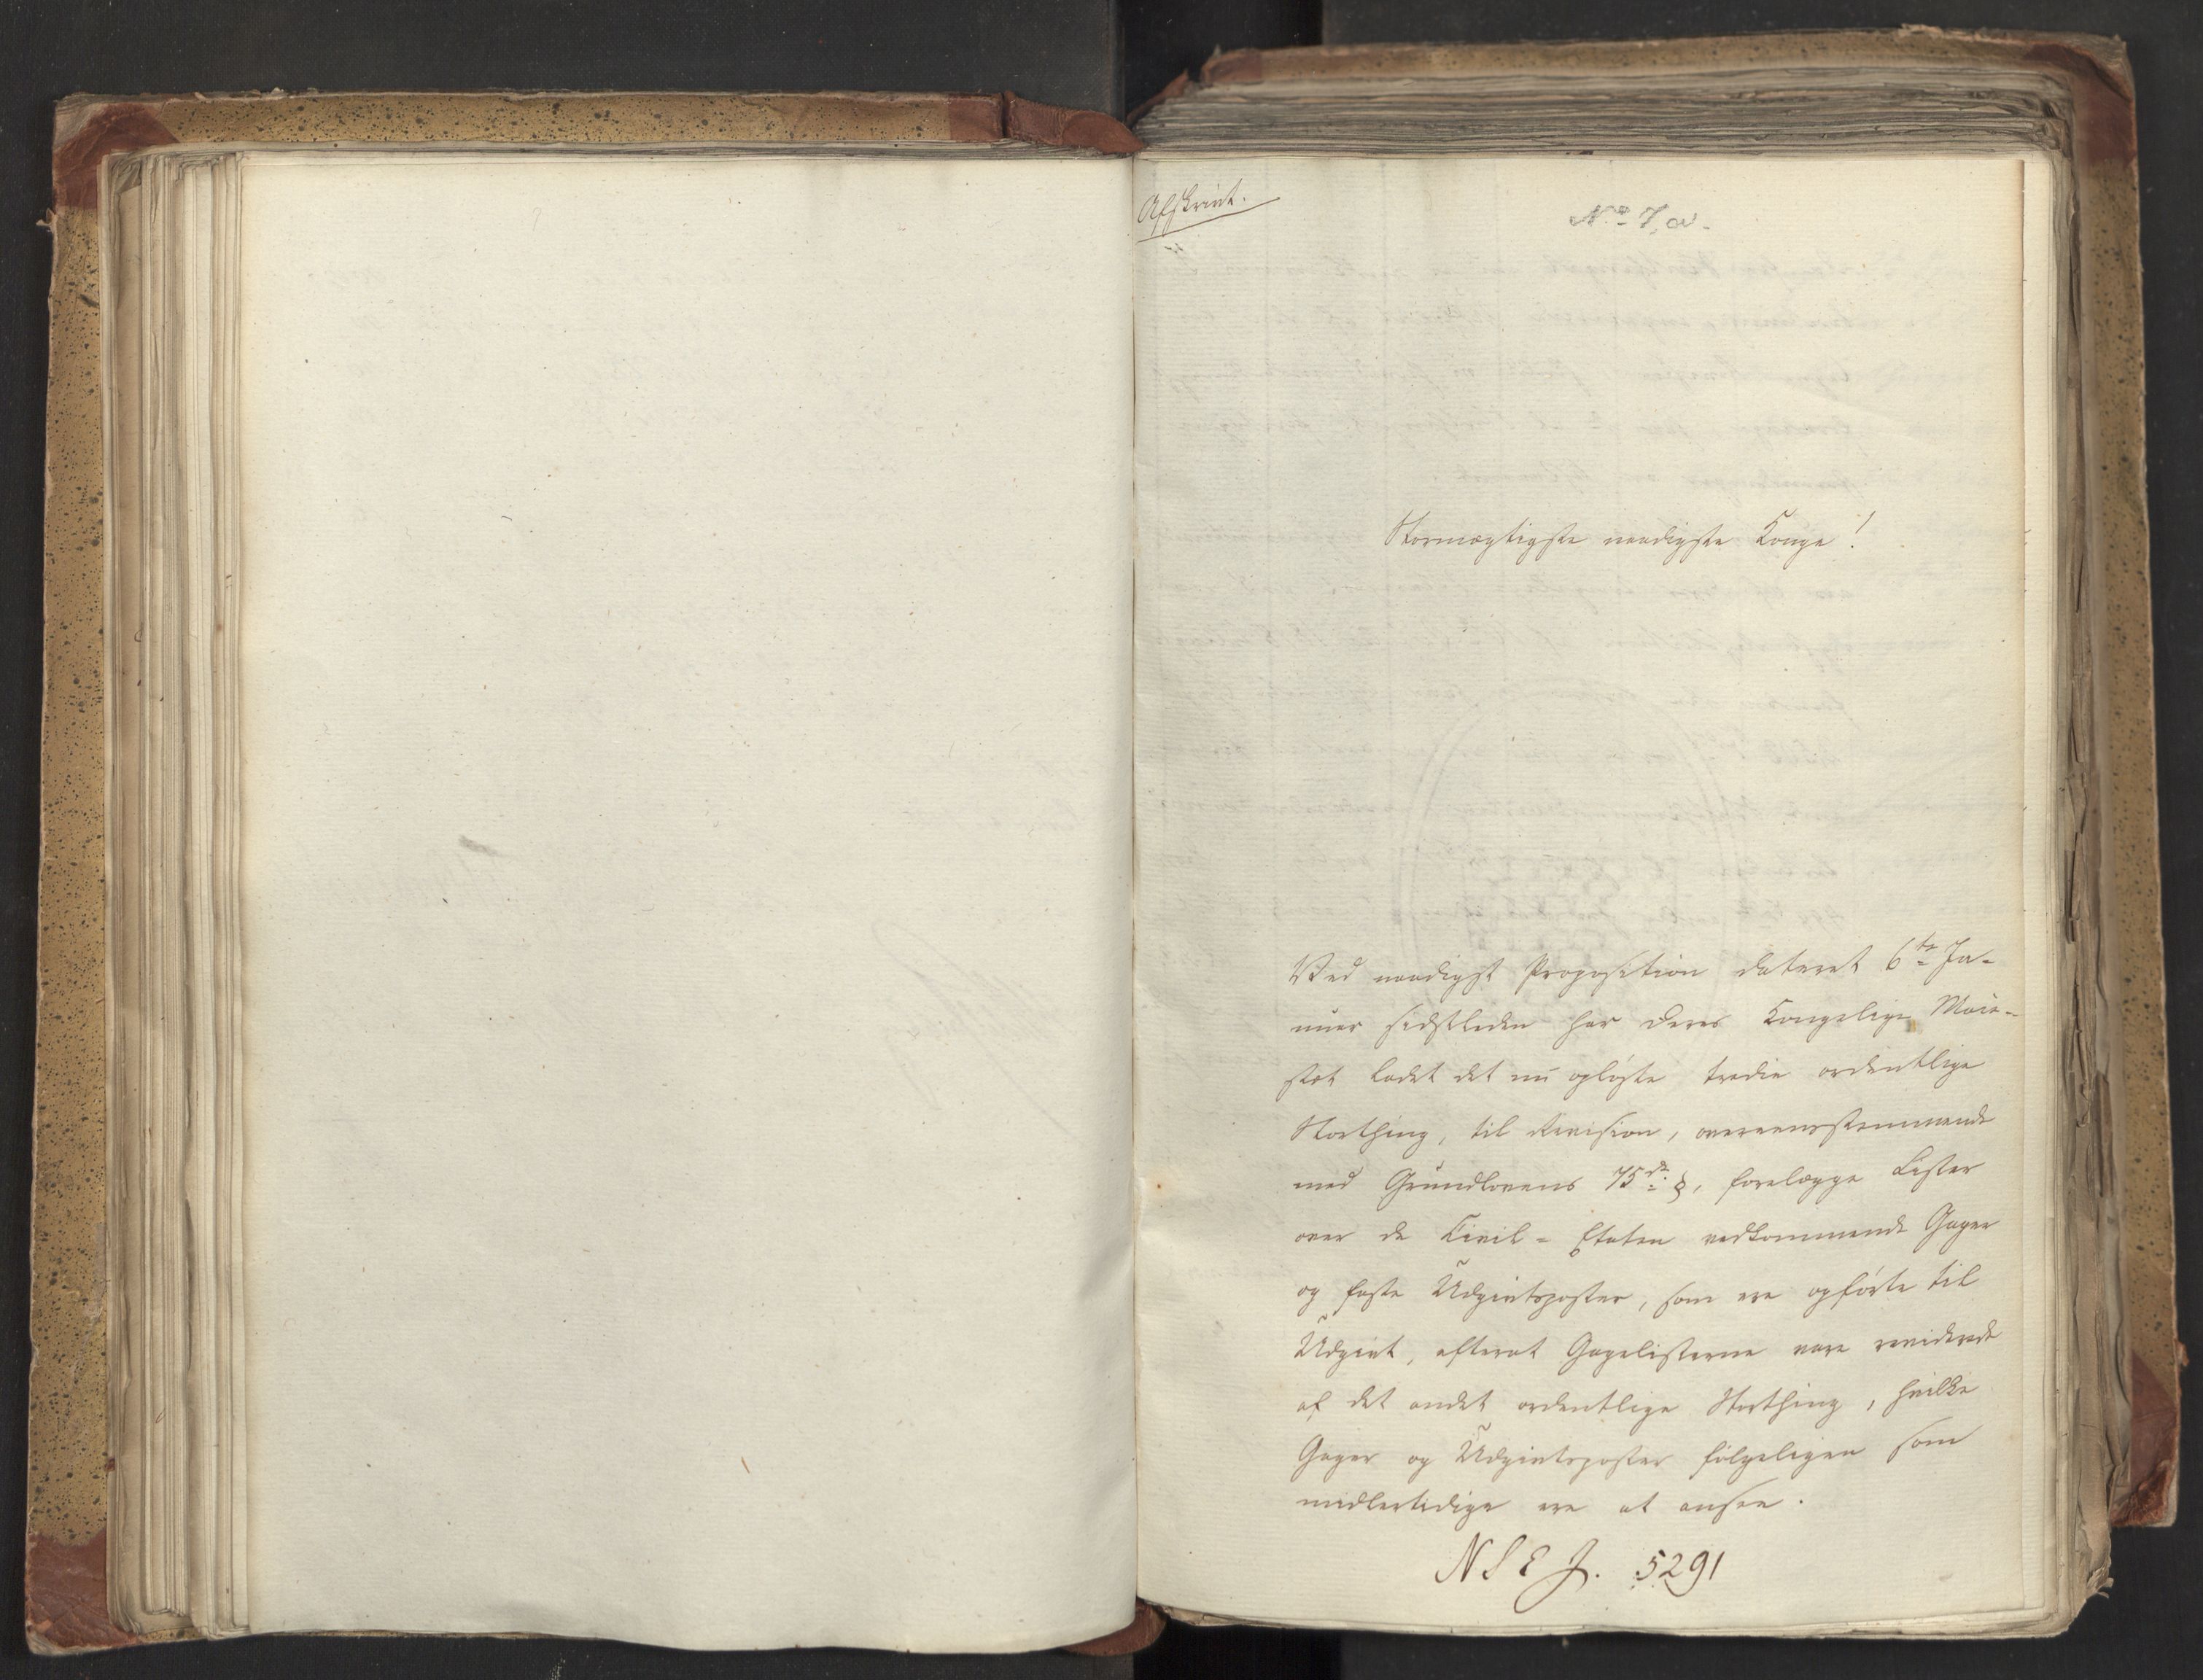 Afskrivt.
No 7, a.
Stormægtigste naadigste Konge!
Ved naadigst Proposition dateret 6te Ja-
nuar sidstleden har Deres Kongelige Maje-
stæt ladet det nu opløste tredie ordentlige
Storthing, til Revision, overeensstemmende
med Grundlovens 75de §, forelægge Lister
over de Civil-Etaten vedkommende Gager
og faste Udgivtsposter, som ere opførte til
Udgivt, efterat Gagelisterne vare reviderede
af det andet ordentlige Storthing, hvilke
Gager og Udgivtsposter følgeligen som
midlertidige ere at ansee.
N S E J. 5291